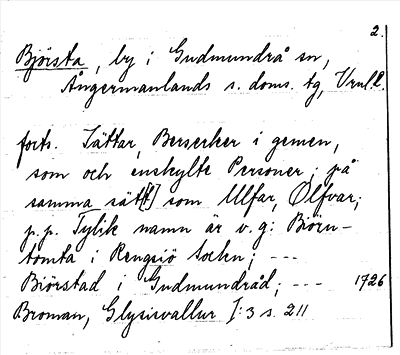 2.
Björsta, by i Gudmundrå sn,
Ångermanlands s. doms. tg, Vnl.l.
forts. Tättar, Berserker i gemen,
som och enskylte Personer; på
samma sätt[t] som Ulfar, Ölfvar;
p.p. Tylik namn är v.g: Biörn-
tomta i Rengsiö Sockn; ---
Biörstad i Gudmundråd; --- 1726
Broman, Glysisvallur I:3 s. 211